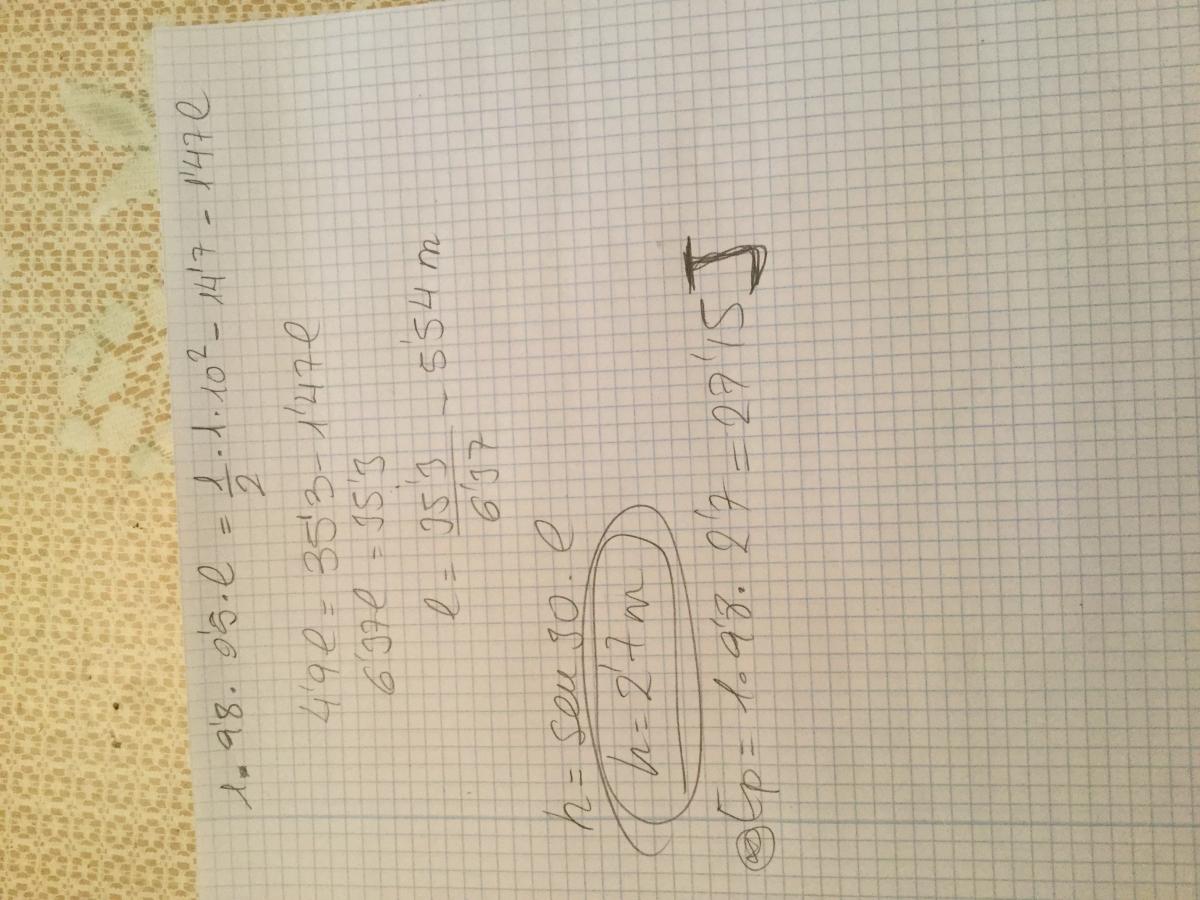 1·9'8·0'5·l = 1/2·1·10² - 14'7 - 1'47l
4'9l = 35'3 - 1'47l
6'37l = 35'3
l = 35'3/6'37 - 5'54 m
h = sen 30·l
h = 2'7 m
Ep = 1·9'8·2'7 = 27'15 J